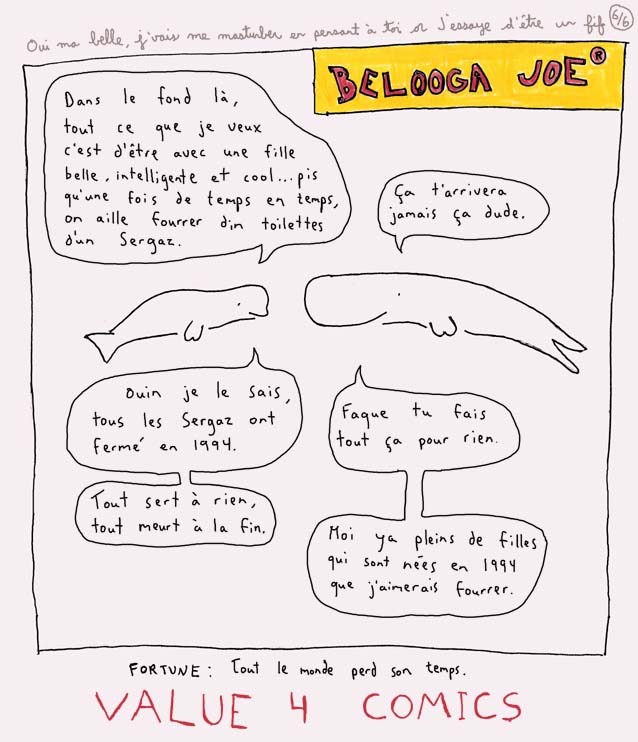 Oui ma belle, j'vais me masturber en pensant à toi or j'essaye d'être un fif 6/6
BELOOGA JOE®
Dans le fond là,
tout ce que je veux
c'est d'être avec une fille
belle, intelligente et cool...pis
qu'une fois de temps en temps,
on aille fourrer din toilettes
d'un Sergaz.
Ça t'arrivera
jamais ça dude.
Ouin je le sais,
tous les Sergaz ont
fermé en 1994.
Tout sert à rien,
tout meurt à la fin.
Faque tu fais
tout ça pour rien.
Moi ya pleins de filles
qui sont nées en 1994
que j'aimerais fourrer.
FORTUNE: Tout le monde perd son temps.
VALUE 4 COMICS